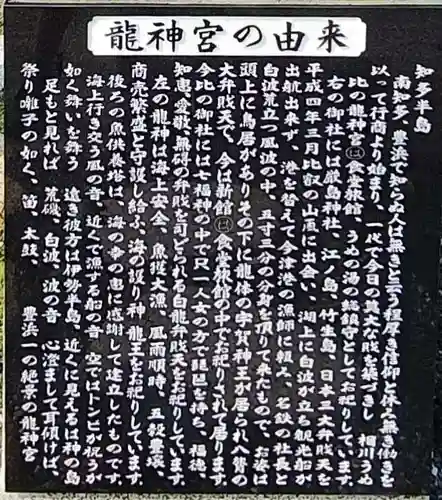 龍神宮の由来
知多半島
南知多、豊浜で知らぬ人は無きと云う程厚き信仰と休み無き働きを
以って行商より始まり、一代で今日の莫大な財を築づきし 相川うめ
此の龍神宮は食堂旅館、うめの湯の総鎮守としてお祀りしています。
右の御社には厳島神社、江ノ島、竹生島、日本三大弁財天を
平成四年三月比叡の山頂に出会い、湖上に白波が立ち観光船が
出航出来ず、港を替えて今津港の漁師に頼み、名鉄の社長と
白波荒立つ風波の中、五寸三分の分身を頂りて来たもので、お姿は
頭上に鳥居がありその下に龍体の宇賀神王が居られ八臂の
大弁財天で、今は新館は食堂旅館の中でお祀りされて居ります。
今比の御社には七福神の中で只一人女の方で琵琶を持ち、福徳
知恵、愛敬、無碍の弁財を司どられる白龍弁財天をお祀しています。
左の龍神は海上安全、魚獲大漁、風雨順時、五穀豊穣、
商売繁盛と守護し給ふ、海の護り神 龍王をお祀しています。
後ろの魚供養塔は、海の幸の恵に感謝して建立したものです。
海上行き交う風の音、近くで漁する船の音 空ではトンビが祝うが
如く舞いを舞う 遠き彼方は伊勢半島、近くに見えるは神の島
足もと見れば 荒磯、白波、波の音 心澄まして耳傾けば、
祭り囃子の如く、笛、太鼓、 豊浜一の絶景の龍神宮